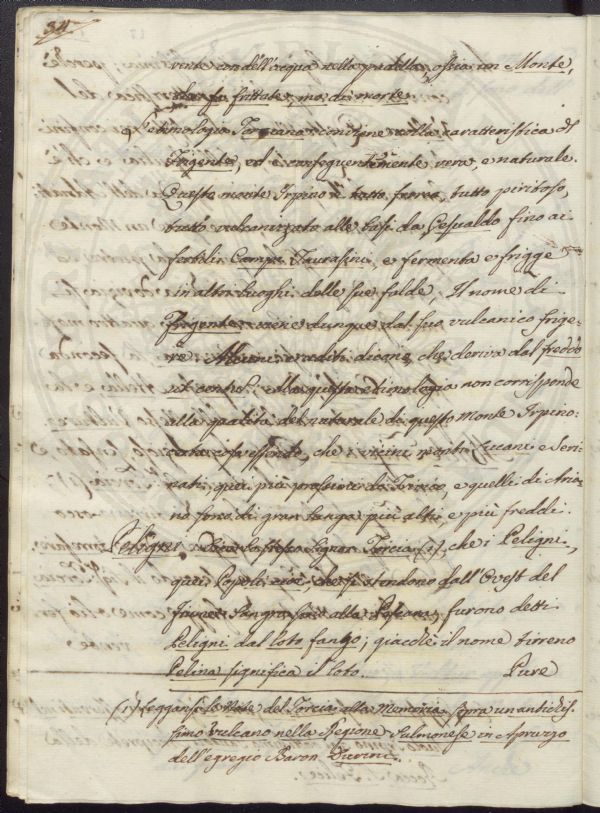 34
vente con dell'acqua nella padella, ossia un Monte,
che fa frittate, ma di morte.
L'etimologia Torciana conviene colla caratteristica di
Frigento, ed è conseguentemente vera, e naturale.
Questo monte Irpino è tutto tutto piritoso,
tutto vulcanizzato alle basi da Gesualdo fino ai
fertili Campi Taurasini, e fermenta e frigge
in altri luoghi delle sue falde. Il nome di
Frigento viene dunque dal suo vulcanico frige-
re. Alcuni eruditi dicono, che deriva dal freddo
ma questa etimologia non corrisponde
alla qualità del naturale di questo Monte Irpino:
che i vicini monti Lucani e Seri-
nati, quei più prossimi da Torcio, e quelli di Aria-
no sono di gran lunga più alti, e più freddi.
Peligni. Dice lo stesso Signor Torcia (1), che i Peligni,
quei Popoli cioè, che si stendono dall'Ovest del
fiume Sangro fino alla Pescara, furono detti
Peligni dal loto fango; giacchè il nome tirreno
Pelina significa il loto. Pure
(1) Leggansi le Note del Torcia alla Memoria sopra un antichis-
simo vulcano nella Regione Sulmonese in Apruzzo
dell'egregio Baron Durini.